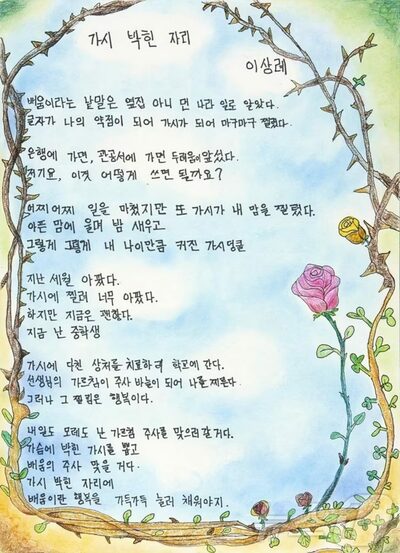 가시 박힌 자리
이상례
배움이라는 낱말은 옆집 아니 먼 나라 일로 알았다.
글자가 나의 약점이 되어 가시가 되어 마구마구 찔렀다.
은행에 가면, 관공서에 가면 두려움이 앞섰다.
저기요, 이것 어떻게 쓰면 될까요?
어찌어찌 일을 마쳤지만 또 가시가 내 맘을 찔렀다.
아픈 맘에 울며 밤 새우고
그렇게 그렇게 내 나이만큼 커진 가시덩쿨
지난 세월 아팠다.
가시에 찔려 너무 아팠다.
하지만 지금은 괜찮다.
지금 난 중학생
가시에 다친 상처를 치료하러 학교에 간다.
선생님의 가르침이 주사 바늘이 되어 나를 찌른다.
그러나 그 찔림은 행복이다.
내일도 모레도 난 가르침 주사를 맞으러 갈거다.
가슴에 박힌 가시를 뽑고
배움의 주사 맞을 거다.
가시 박힌 자리에
배움이란 행복을 가득가득 눌러 채워야지.